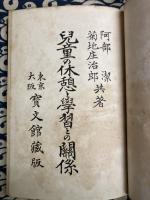 阿部潔
菊地庄治郎
共著
兒童の休憩と學習との關係
東京
大阪
寶文館藏版